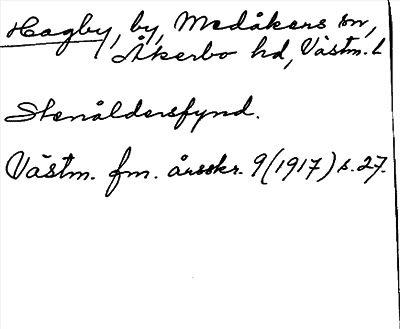 Hagby, by, Medåkers sn,
Åkerbo hd, Västm. L
Stenåldersfynd.
Västm. fm. årsskr. 9 (1917) s. 27.